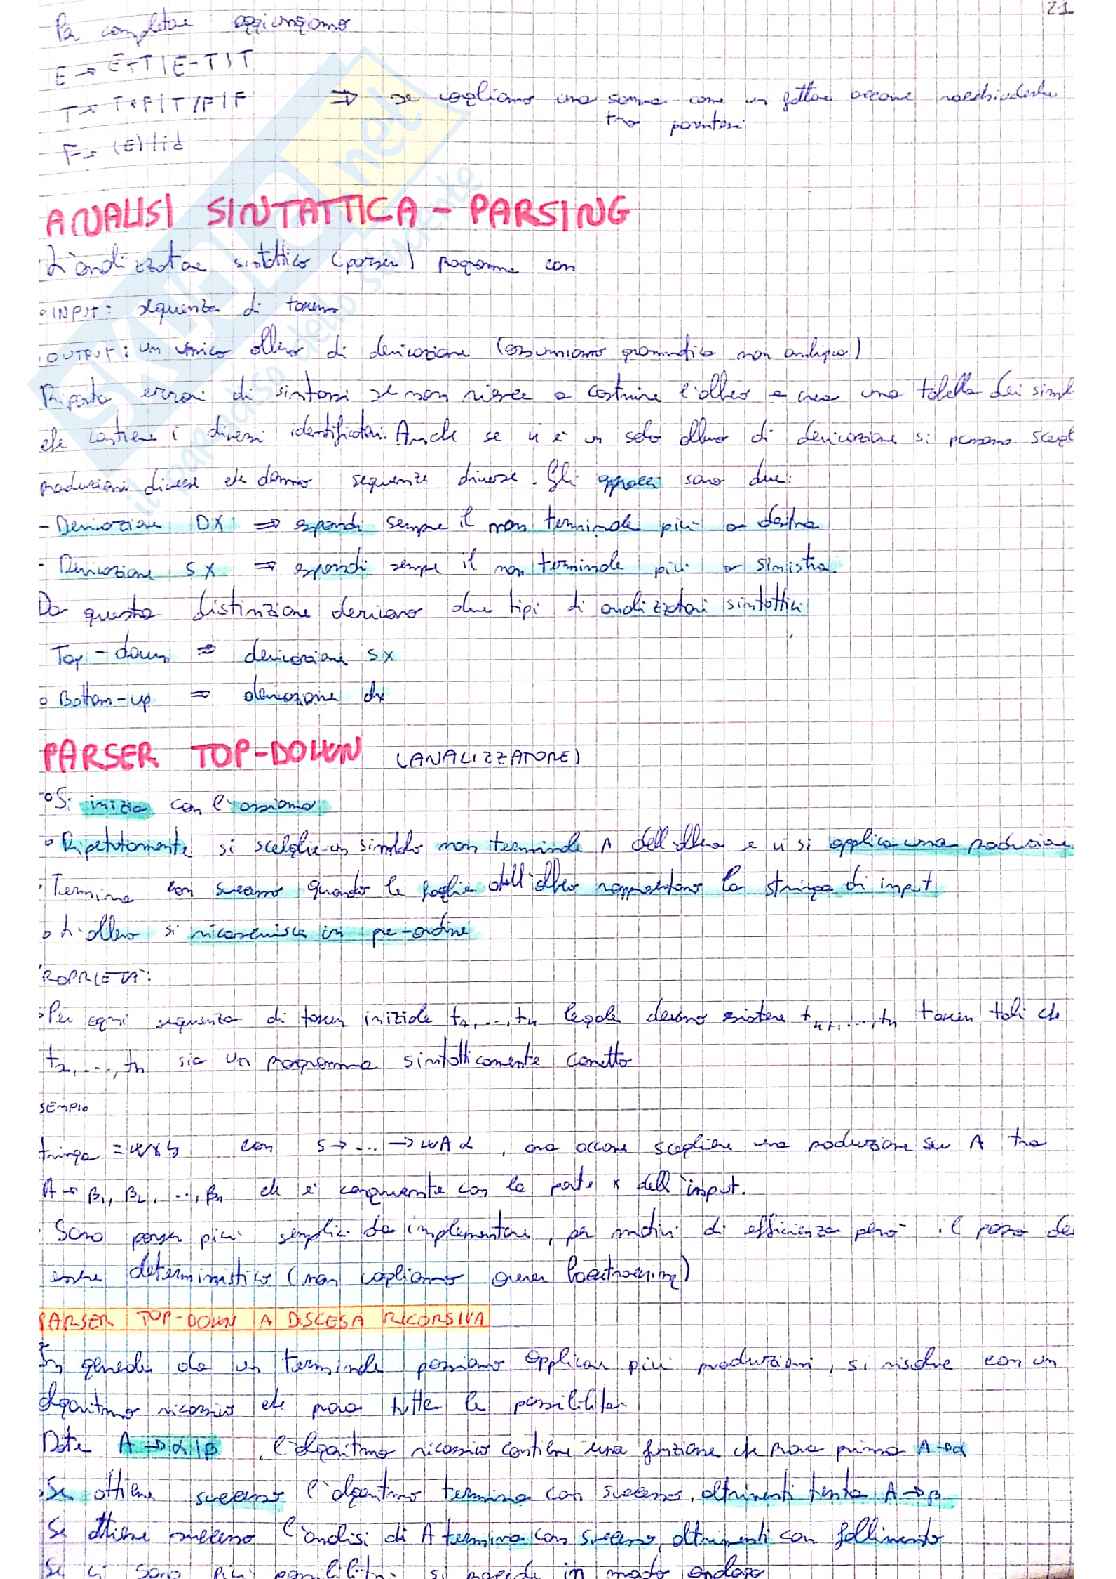 21
Per completare aggiungiamo
E → E+T|E-T|T
T → T*F|T/F|F ⇒ se vogliamo una somma come un fattore occorre racchiuderla
tra parentesi
F → (E)|id
ANALISI SINTATTICA - PARSING
L'analizzatore sintattico (parser) programma con
INPUT: sequenza di token
OUTPUT: un unico albero di derivazione (assumiamo grammatica non ambigua)
Riporta errori di sintassi se non riesce a costruire l'albero e crea una tabella dei simb
che contiene i diversi identificatori. Anche se vi è un solo albero di derivazione si possono scegl
produzioni diverse che danno sequenze diverse. Gli approcci sono due:
- Derivazione DX ⇒ espandi sempre il non terminale più a destra
- Derivazione SX ⇒ espandi sempre il non terminale più a sinistra
Da questa distinzione derivano due tipi di analizzatori sintattici
Top-down ⇒ derivazione sx
Bottom-up ⇒ derivazione dx
PARSER TOP-DOWN (ANALIZZATORE)
Si inizia con l'assioma
Ripetutamente si sceglie un simbolo non terminale A dell'albero e vi si applica una produzione
Termina con successo quando le foglie dell'albero rappresentano la stringa di input
L'albero si ricostruisce in pre-ordine
ROPRIETA':
Per ogni sequenza di token iniziale legale devono esistere token tali che
sia un programma sintatticamente corretto
SEMPIO
tringa = con S→...→wAα, ora occorre scegliere una produzione su A tra
A→β1, β2, ..., βn che è congruente con la parte x dell'input.
Sono parser più semplici da implementare, per motivi di efficienza però il parser de
essere deterministico (non vogliamo avere backtracking)
PARSER TOP-DOWN A DISCESA RICORSIVA
In generale da un terminale possiamo applicare più produzioni, si risolve con un
algoritmo ricorsivo che prova tutte le possibilità.
Data A→α|β, l'algoritmo ricorsivo contiene una funzione che prova prima A→α
Se ottiene successo l'algoritmo termina con successo, altrimenti tenta A→β
Se ottiene successo l'analisi di A termina con successo, altrimenti con fallimento
Se ci sono più possibilità si procede in modo analogo